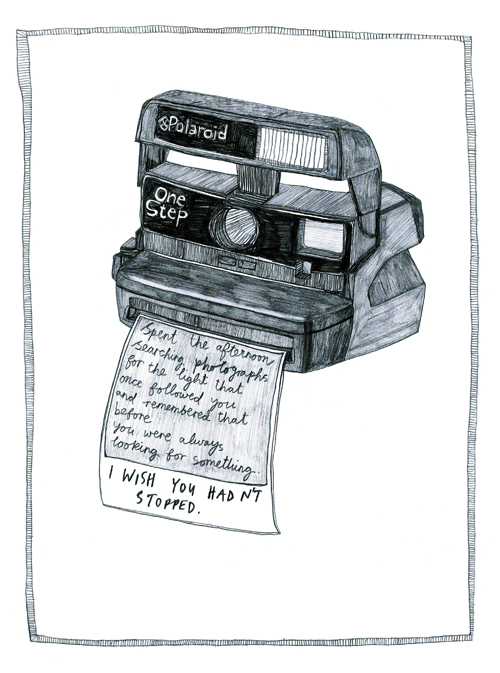 Polaroid
One
Step
Spent the afternoon
searching photographs
for the light that
once followed you
and remembered that
before
you were always
looking for something.
I WISH YOU HADN'T
STOPPED.